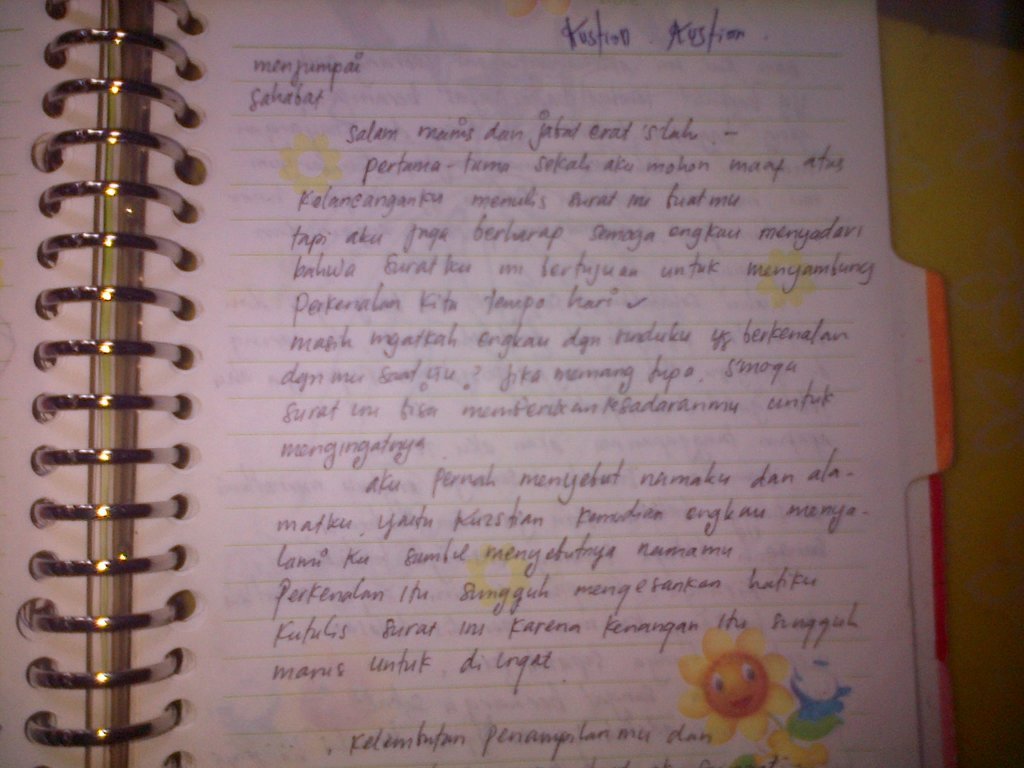 Kustian Kustian
menjumpai
Sahabat
salam manis dan jabat erat s'lalu -
pertama-tama sekali aku mohon maaf atas
kelancanganku menulis surat ini buatmu
tapi aku juga berharap semoga engkau menyadari
bahwa suratku ini bertujuan untuk menyambung
perkenalan kita tempo hari
masih ingatkah engkau dgn yg berkenalan
dgn mu saat itu? jika memang lupa. s'moga
surat ini bisa memberikan kesadaranmu untuk
mengingatnya
aku pernah menyebut namaku dan ala-
matku, yaitu Kustian kemudian engkau menya-
lami ku sambil menyebutnya namamu
Perkenalan itu sungguh mengesankan hatiku
Kutulis surat ini karena kenangan itu sungguh
manis untuk di ingat
kelembutan penampilanmu dan